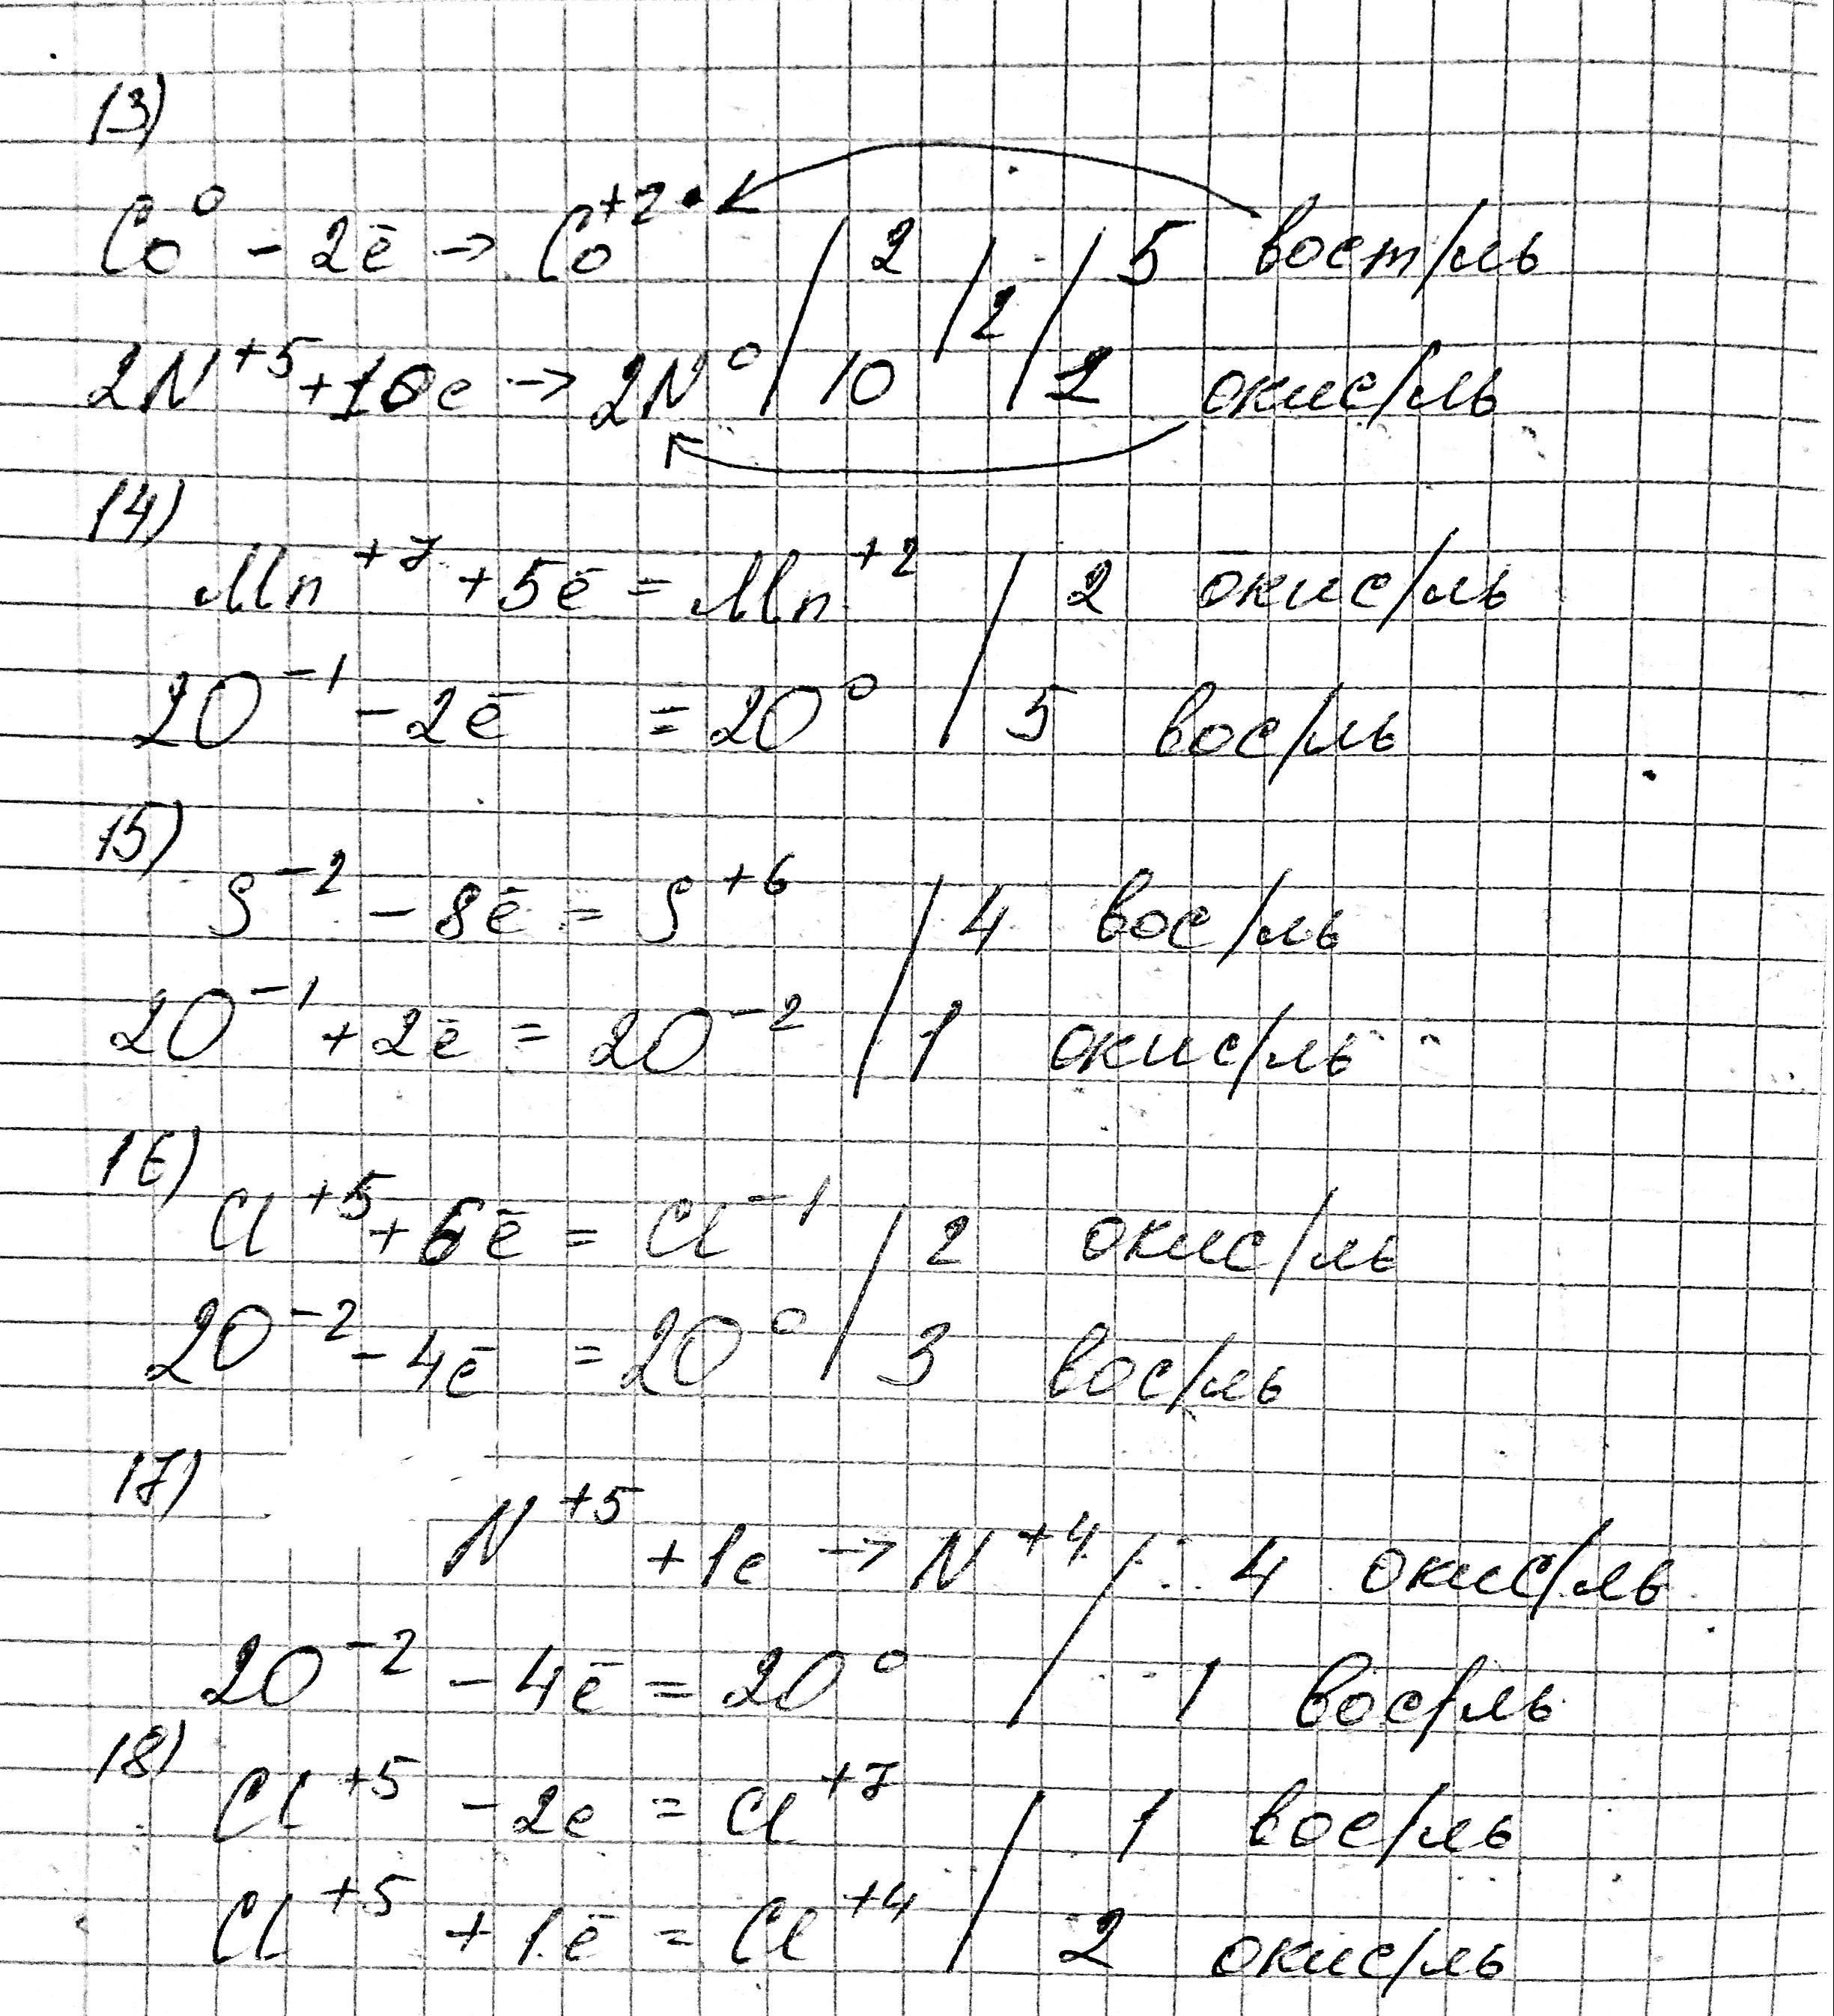 13)
Co⁰ - 2ē → Co⁺² / 2 / 2 / 5 вост/ль
2N⁺⁵ + 10e → 2N⁰ / 10 / 1 окис/ль
14)
Mn⁺⁷ + 5ē = Mn⁺² / 2 окис/ль
2O⁻¹ - 2ē = 2O⁰ / 5 вос/ль
15)
S⁻² - 8ē = S⁺⁶ / 4 вос/ль
2O⁻¹ + 2ē = 2O⁻² / 1 окис/ль
16)
Cl⁺⁵ + 6ē = Cl⁻¹ / 2 окис/ль
2O⁻² - 4ē = 2O⁰ / 3 вос/ль
17)
N⁺⁵ + 1e → N⁺⁴ / 4 окис/ль
2O⁻² - 4ē = 2O⁰ / 1 вос/ль
18)
Cl⁺⁵ - 2e = Cl⁺⁷ / 1 вос/ль
Cl⁺⁵ + 1ē = Cl⁺⁴ / 2 окис/ль